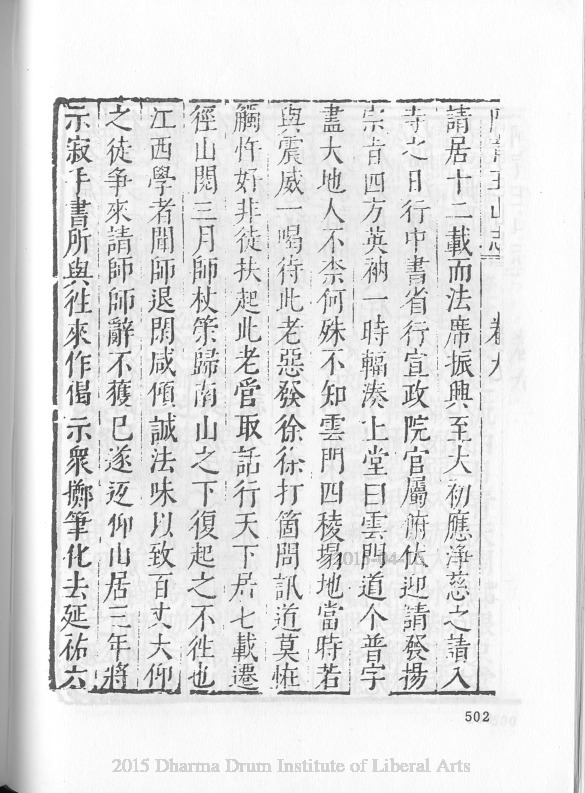 阿育王山志 卷九
請居十二載而法席振興至大初應淨慈之請入
寺之日行中書省行宣政院官屬俯伏迎請發揚
宗旨四方英衲一時輻湊上堂曰雲門道个普字
盡大地人不柰何殊不知雲門四稜塌地當時若
與震威一喝待此老惡發徐徐打箇問訊道莫恠
觸忤好非徒扶起此老管取話行天下居七載遷
徑山閱三月師杖䇿歸南山之下復起之不徃也
江西學者聞師退閑咸傾誠法味以致百丈大仰
之徒争來請師師辭不獲已遂迓仰山居三年將
示寂手書所與徃來作偈示衆擲筆化去延祐六
502
2015-04-
2015 Dharma Drum Institute of Liberal Arts